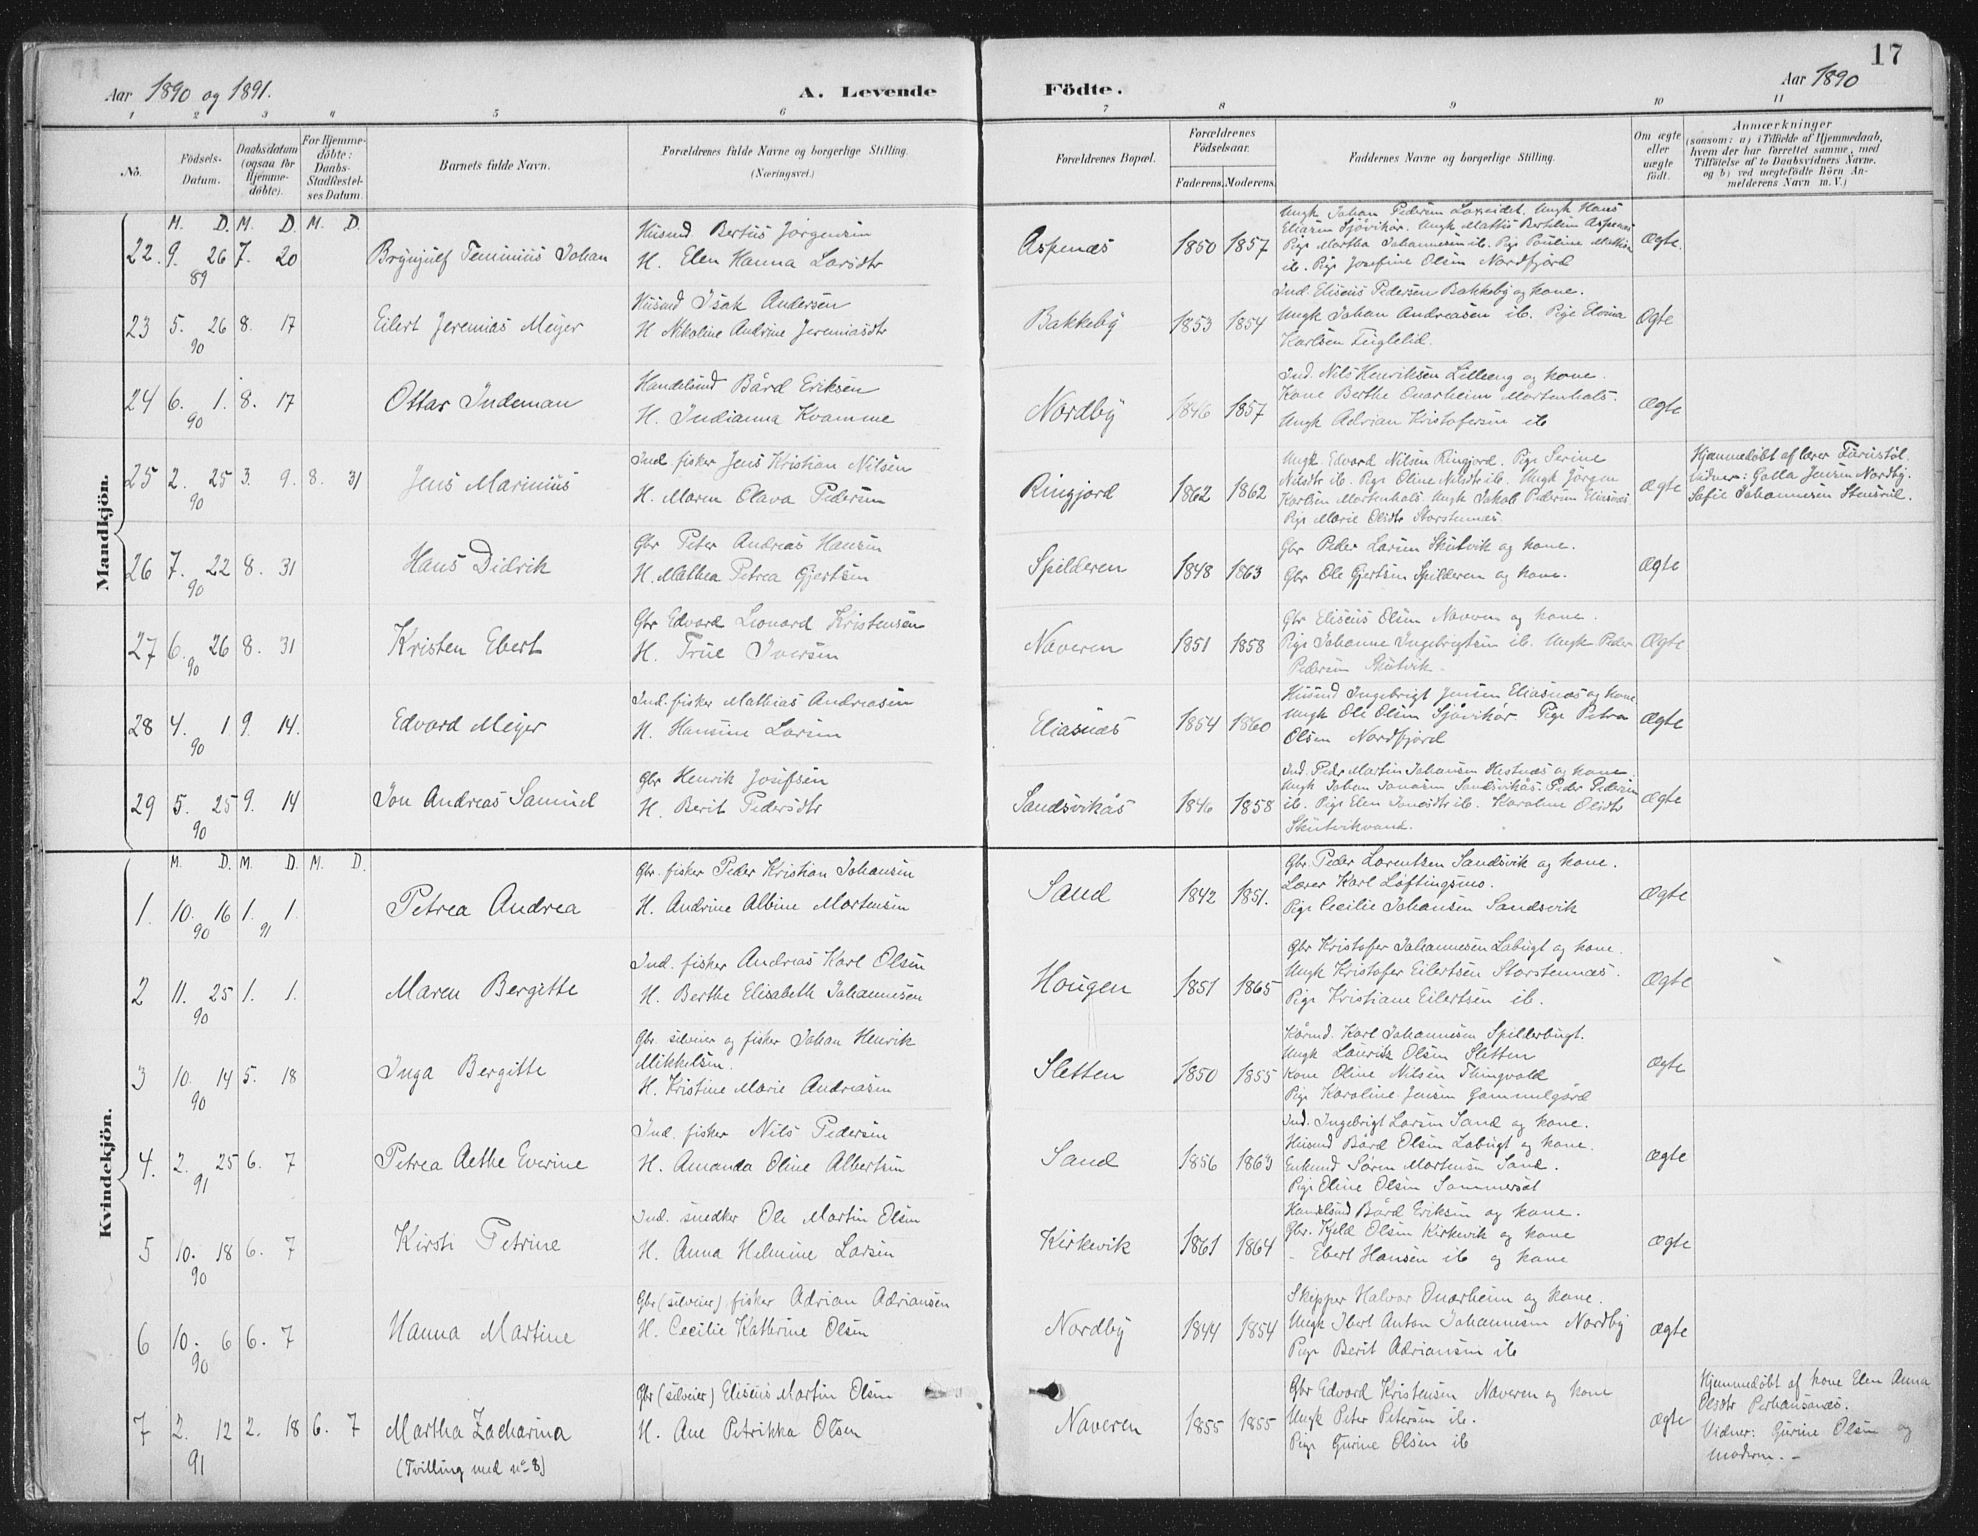 17
Aar 1890 og 1891. A. Levende Födte. Aar 1890
1 2 3 4 5 6 7 8 9 10 11
No.
Födsels-Datum.
Daabsdatum (ogsaa for Hjemme-döbte).
For Hjemme-döbte: Daabs-Stadfæstel-ses Datum.
Barnets fulde Navn.
Forældrenes fulde Navne og borgerlige Stilling.
(Næringsvei.)
Forældrenes Bopæl.
Forældrenes Födselsaar.
Faderens. Moderens.
Faddernes Navne og borgerlige Stilling.
Om ægte eller uægte födt.
Anmærkninger
(saasom: a) i Tilfælde af Hjemmedaab, hvem der har forrettet samme, med Tilföielse af to Daabsvidners Navne. og b) ved uægtefödte Börn An-melderens Navn m.V.)
Mandkjön.
M. D. M. D. M. D.
22. 9. 26 89 7. 20
Brynjulf Teminius Johan
Husmd Bertus Jørgensen
H. Elen Hanna Larsdtr
Aspenæs
1850 1857
Ungk Johan Pedersen Ungk Hans
Eliasen Sjøvikør. Ungk Mattis Bertelsen Aspenæs
Pige Martha Johannesen ib. Pige Pauline Mattisen
ib. Pige Josefine Olsen Nordfjord
Ægte.
23 5. 26 90 8. 17
Eilert Jeremias Meyer
Husmd Isak Andersen
H Nikoline Andrine Jeremiasdtr
Bakkeby
1853 1854
Ind. Eliseus Pedersen Bakkeby og kone.
Ungk Johan Andreasen ib. Pige Elvina
Karlsen Fuglelid.
Ægte
24 6. 1. 90 8. 17
Ottar Indeman
Handelsmd Bård Eriksen
H. Indianna Kvamme
Nordby
1846 1857
Ind. Nils Henriksen Lilleeng og kone.
Kone Berthe Onarheim Mortenhals.
Ungk Adrian Kristofersen ib
Ægte
25 2. 25 90 3. 9. 8. 31
Jens Marinius
Ind. fisker Jens Kristian Nilsen
H. Maren Olava Pedersen
Ringjord
1862 1862
Ungk. Edvard Nilsen Ringjord. Pige Serine
Nilsdtr ib. Pige Oline Nilsdtr ib. Ungk Jørgen
Karlsen Mortenhals Ungk Jakob Pedersen Eliasnæs
Pige Marie Olsdtr Storstennæs.
Ægte
Hjemmedøbt af lærer Furustøl.
Vidner: Galla Jensen Nordby.
Sofie Johannesen
26 7. 22 90 8. 31
Hans Didrik
Gbr Peter Andreas Hansen
H. Mathea Petrea Gjertsen
Spilderen
1848 1863
Gbr Peder Larsen Skutvik og kone.
Gbr Ole Gjertsen Spilderen og kone.
Ægte
27 6. 26 90 8. 31
Kristen Ebert
Gbr Edvard Leonard Kristensen
H. True Iversen
Naveren
1851 1858
Gbr Eliseus Olsen Naveren og kone.
Pige Johanne Ingebrigtsen ib. Ungk Peder
Pedersen Skutvik.
Ægte
28 4. 1 90 9. 14.
Edvard Meyer
Ind. fisker Mathias Andreasen
H. Hansine Larsen
Eliasnæs
1854 1860
Husmd Ingebrigt Jensen Eliasnæs og kone
Ungk Ole Olsen Sjøvikør. Pige Petra
Olsen Nordfjord
Ægte
29 5. 25 90 9. 14
Jon Andreas Samuel
Gbr Henrik Josefsen
H. Berit Pedersdtr
Sandsvikås
1846 1858
Ind. Peder Martin Johansen Hestnæs og kone
Ungk Johan Jonasen Sandsvikås. Peder Pedersen
ib. Pige Elen Jonasdtr ib. Karoline Olsdtr
Skutvikvand.
Ægte
Kvindekjön.
M. D. M. D. M. D.
1. 10. 16 90 1. 1. 91
Petrea Andrea
Gbr. fisker Peder Kristian Johansen
H. Andrine Albine Mortensen
Sand
1842 1851.
Gbr. Peder Lorentsen Sandsvik og kone.
Lærer Karl Løftingsmo.
Pige Cecilie Johansen Sandsvik
Ægte
2 11. 25 90 1. 1.
Maren Bergitte
Ind. fisker Andreas Karl Olsen
H. Berthe Elisabeth Johannesen
Hougen
1851 1865
Gbr Kristofer Johannesen Labugt og kone.
Ungk Kristofer Eilertsen Storstennæs.
Pige Kristiane Eilertsen ib.
Ægte
3 10. 14 90 5. 18
Inga Bergitte
Gbr. selveier og fisker Johan Henrik
Mikkelsen.
H. Kristine Marie Andreasen
Sletten
1850 1855
Kårmd. Karl Johannesen Spillerbugt.
Ungk Laurits Olsen Sletten
Kone Oline Nilsen Thingvold
Pige Karoline Jensen Gammelgård
Ægte
4. 2. 25 91 6. 7
Petrea Aethe Everine
Ind. fisker Nils Pedersen
H. Amanda Oline Albertsen
Sand
1856 1863
Ind. Ingebrigt Larsen Sand og kone.
Husmd Bård Olsen Labugt og kone.
Enkemd Søren Mortensen Sand.
Pige Eline Olsen Sommersæt
Ægte
5 10. 18 90 6. 7
Kirsti Petrine
Ind. snedker Ole Martin Olsen
H. Anna Helmine Larsen
Kirkevik
1861 1864
Handelsmd Bård Eriksen og kone.
Gbr. Kjeld Olsen Kirkevik og kone
- Ebert Hansen ib og kone
Ægte
6 10. 6 90 6. 7
Hanna Martine
Gbr (selveier) fisker Adrian Adriansen
H. Cecilie Kathrine Olsen
Nordby
1844 1854
Skipper Halvor Onarheim og kone.
Ungk Ibert Anton Johannesen Nordby
Pige Berit Adriansen ib
Ægte
7 2. 12 91 2. 18 6. 7
Martha Zacharina
(Tvilling med no 8)
Gbr (selveier) Eliseus Martin Olsen
H. Ane Petrikka Olsen
Naveren
1855 1855
Gbr Edvard Kristensen Naveren og kone
Ungk Peter Petersen ib.
Pige Gurine Olsen ib
Ægte
Hjemmedøbt af kone Elen Anna
Olsdtr Perhansnæs.
Vidner: Gurine Olsen og
moderen. -